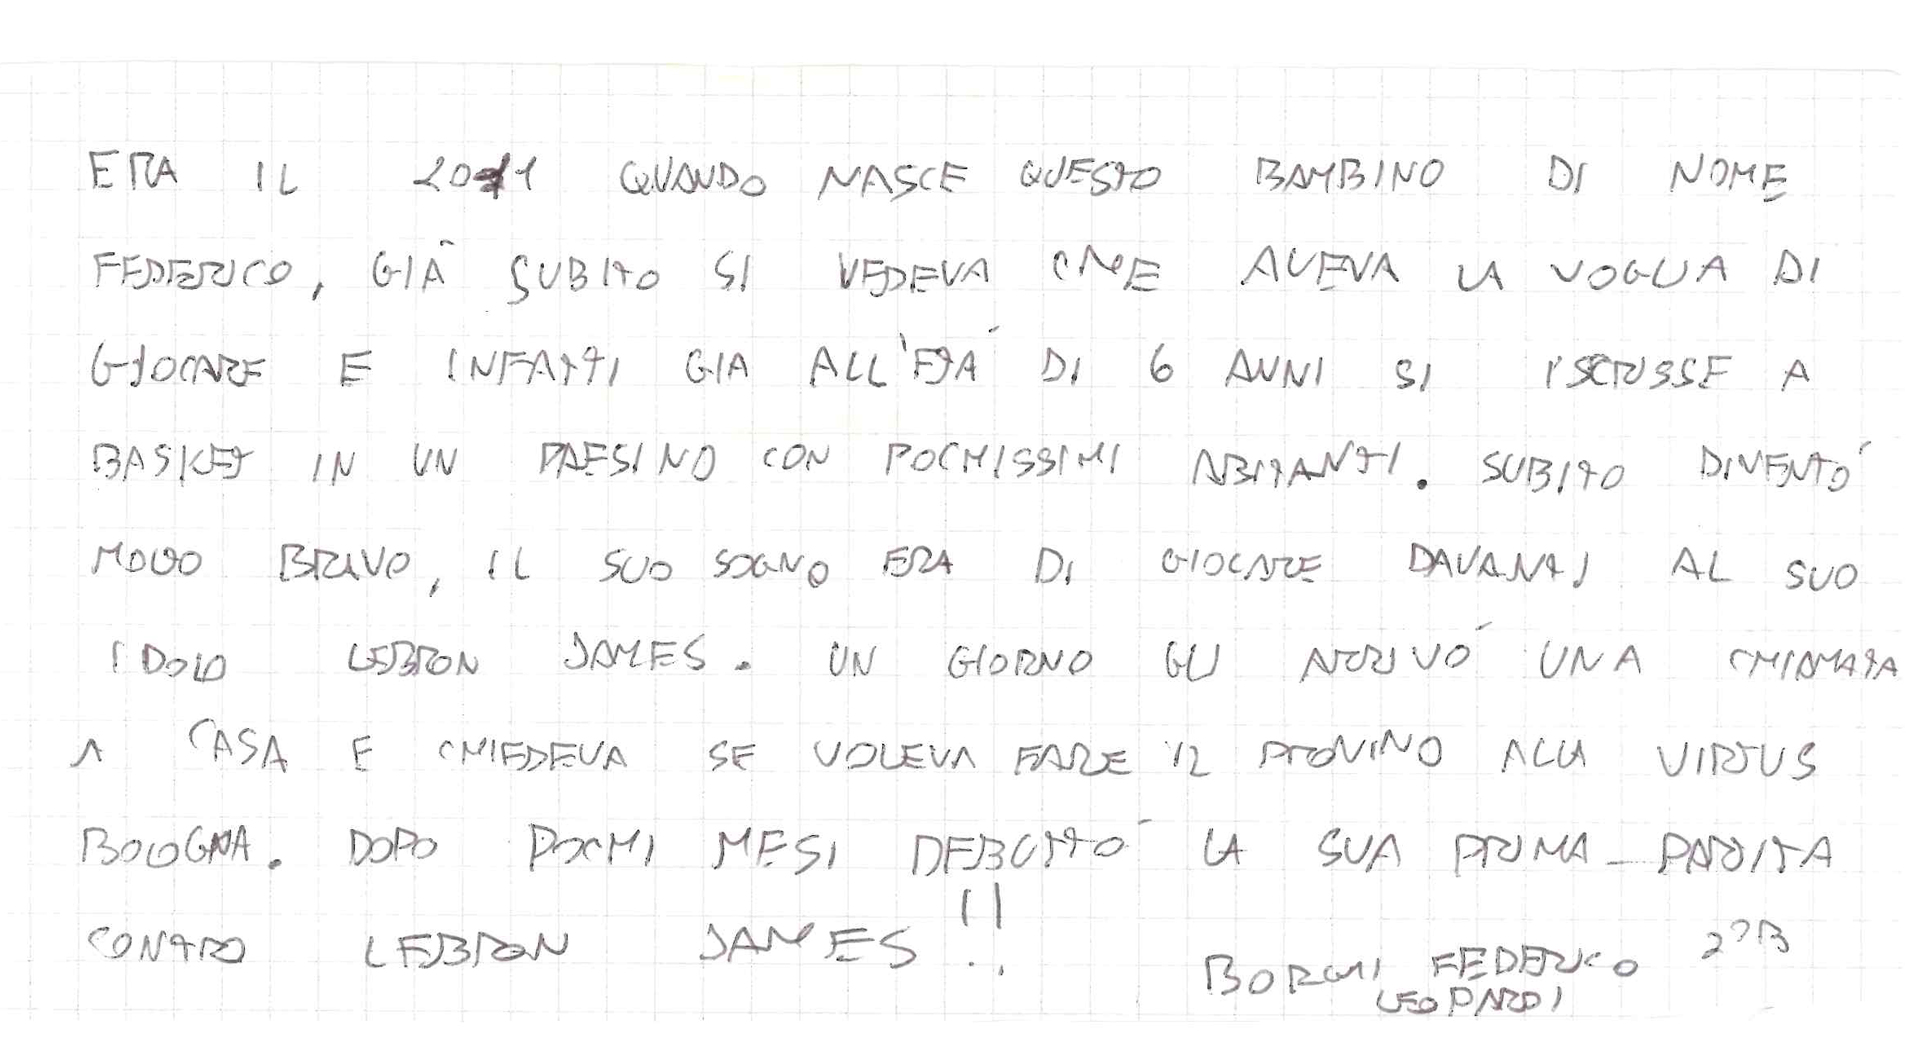 ERA IL 2011 QUANDO NASCE QUESTO BAMBINO DI NOME
FEDERICO, GIÀ SUBITO SI VEDEVA CHE AVEVA LA VOGLIA DI
GIOCARE E INFATTI GIA ALL'ETÁ DI 6 ANNI SI ISCRISSE A
BASKET IN UN PAESINO CON POCHISSIMI ABITANTI. SUBITO DIVENTÓ
MOLTO BRAVO, IL SUO SOGNO ERA DI GIOCARE DAVANTI AL SUO
IDOLO LEBRON JAMES. UN GIORNO GLI ARRIVÓ UNA CHIAMATA
A CASA E CHIEDEVA SE VOLEVA FARE IL PROVINO ALLA VIRTUS
BOLOGNA. DOPO POCHI MESI DEBUTTÓ LA SUA PRIMA PARTITA
CONTRO LEBRON JAMES!!
BORGHI FEDERICO 2°B
LEOPARDI